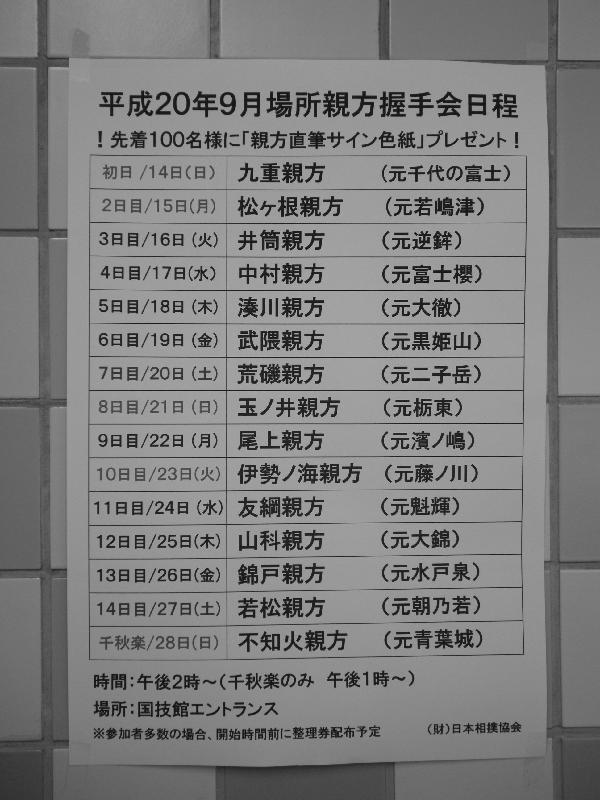 平成20年9月場所親方握手会日程
！先着100名様に「親方直筆サイン色紙」プレゼント！
初日/14日(日) 九重親方 (元千代の富士)
2日目/15日(月) 松ヶ根親方 (元若嶋津)
3日目/16日(火) 井筒親方 (元逆鉾)
4日目/17日(水) 中村親方 (元富士櫻)
5日目/18日(木) 湊川親方 (元大徹)
6日目/19日(金) 武隈親方 (元黒姫山)
7日目/20日(土) 荒磯親方 (元二子岳)
8日目/21日(日) 玉ノ井親方 (元栃東)
9日目/22日(月) 尾上親方 (元濱ノ嶋)
10日目/23日(火) 伊勢ノ海親方 (元藤ノ川)
11日目/24日(水) 友綱親方 (元魁輝)
12日目/25日(木) 山科親方 (元大錦)
13日目/26日(金) 錦戸親方 (元水戸泉)
14日目/27日(土) 若松親方 (元朝乃若)
千秋楽/28日(日) 不知火親方 (元青葉城)
時間：午後2時～(千秋楽のみ 午後1時～)
場所：国技館エントランス
※参加者多数の場合、開始時間前に整理券配布予定 (財)日本相撲協会